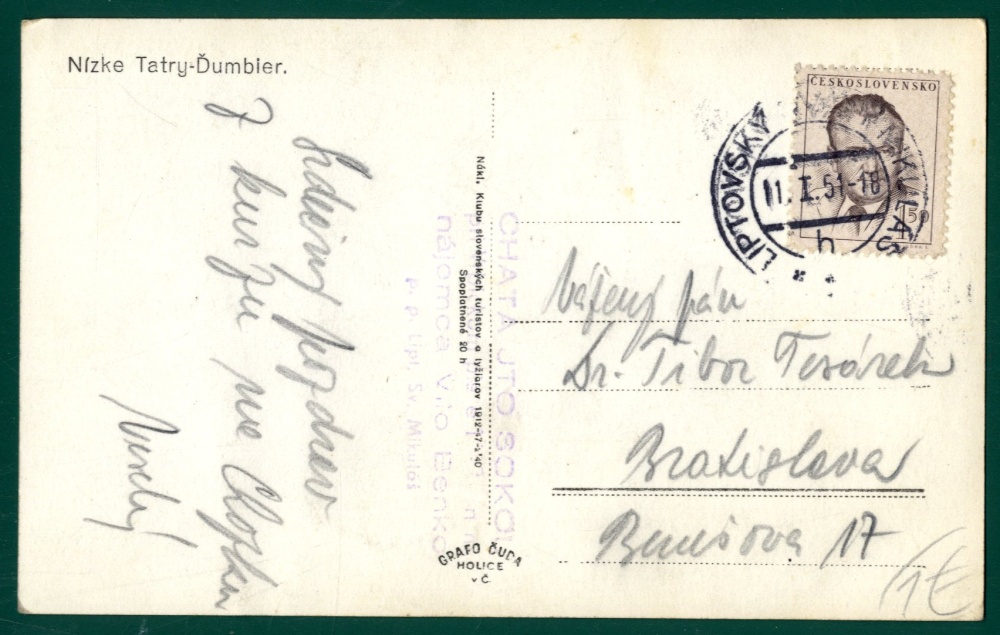 Nízke Tatry-Ďumbier.
Srdečný pozdrav
Z kurzu na Chopku
Nákl. Klubu slovenských turistov a lyžiarov 1912-47-L'40
Spoplatnené 20 h
CHATA JTO SOKOL
nájomca Vilo Benko
p. p. Lipt. Sv. Mikuláš
GRAFO ČUDA
HOLICE
v Č.
ČESKOSLOVENSKO
1.50
LIPTOVSKÝ MIKULÁŠ
11. I. 51-18
h
Vážený pán
Dr. Tibor Tesárek
Bratislava
Benešova 17
1€